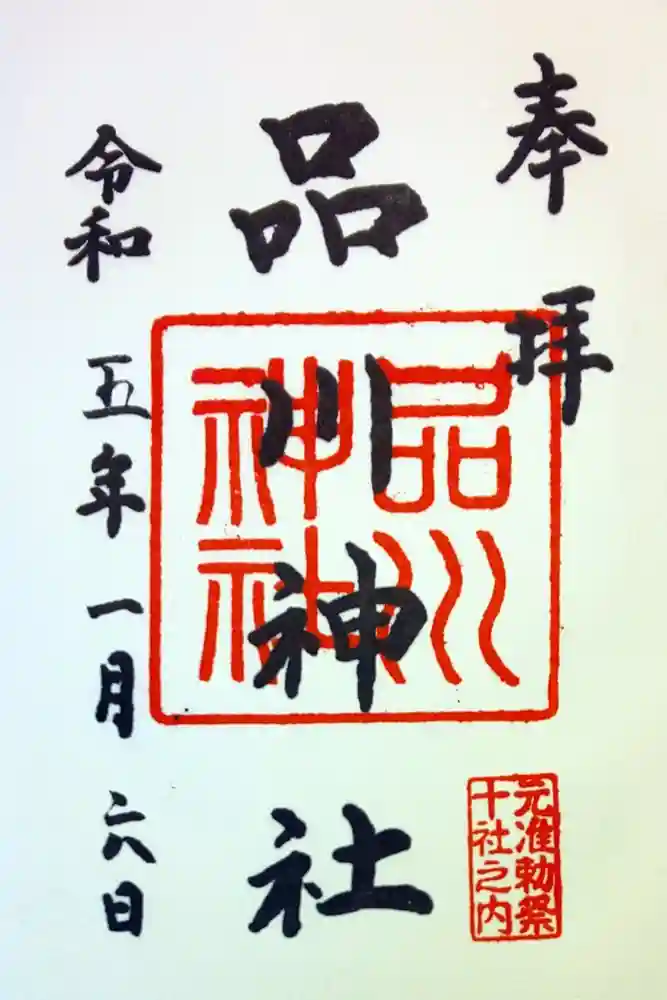 奉拝
品川神社
品川
神社
令和五年一月六日
元准勅祭
十社之内